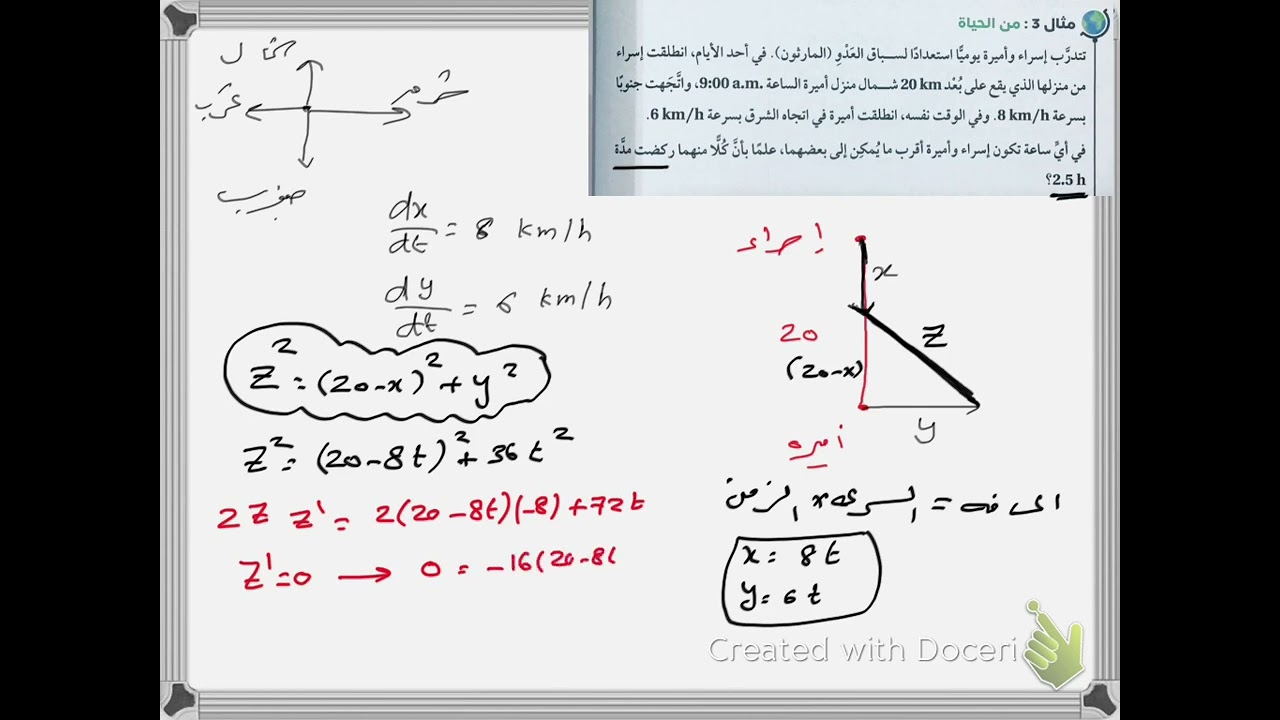 مثال 3 : من الحياة
تتدرَّب إسراء وأميرة يوميًّا استعدادًا لسباق العَدْوِ (المارثون). في أحد الأيام، انطلقت إسراء
من منزلها الذي يقع على بُعْد 20 km شمال منزل أميرة الساعة 9:00 a.m.، واتَّجَهت جنوبًا
بسرعة 8 km/h. وفي الوقت نفسه، انطلقت أميرة في اتجاه الشرق بسرعة 6 km/h.
في أيِّ ساعة تكون إسراء وأميرة أقرب ما يُمكِن إلى بعضهما، علمًا بأنَّ كُلًّا منهما ركضت مدَّة
2.5 h؟
شمال
شرق
غرب
جنوب
dx/dt = 8 km/h
dy/dt = 6 km/h
z² = (20-x)² + y²
z² = (20-8t)² + 36t²
2z z' = 2(20-8t)(-8)+72t
z'=0 → 0 = -16(20-8t
إسراء
x
20
(20-x)
z
y
أميره
المسافه = السرعه x الزمن
x = 8t
y = 6t
Created with Doceri